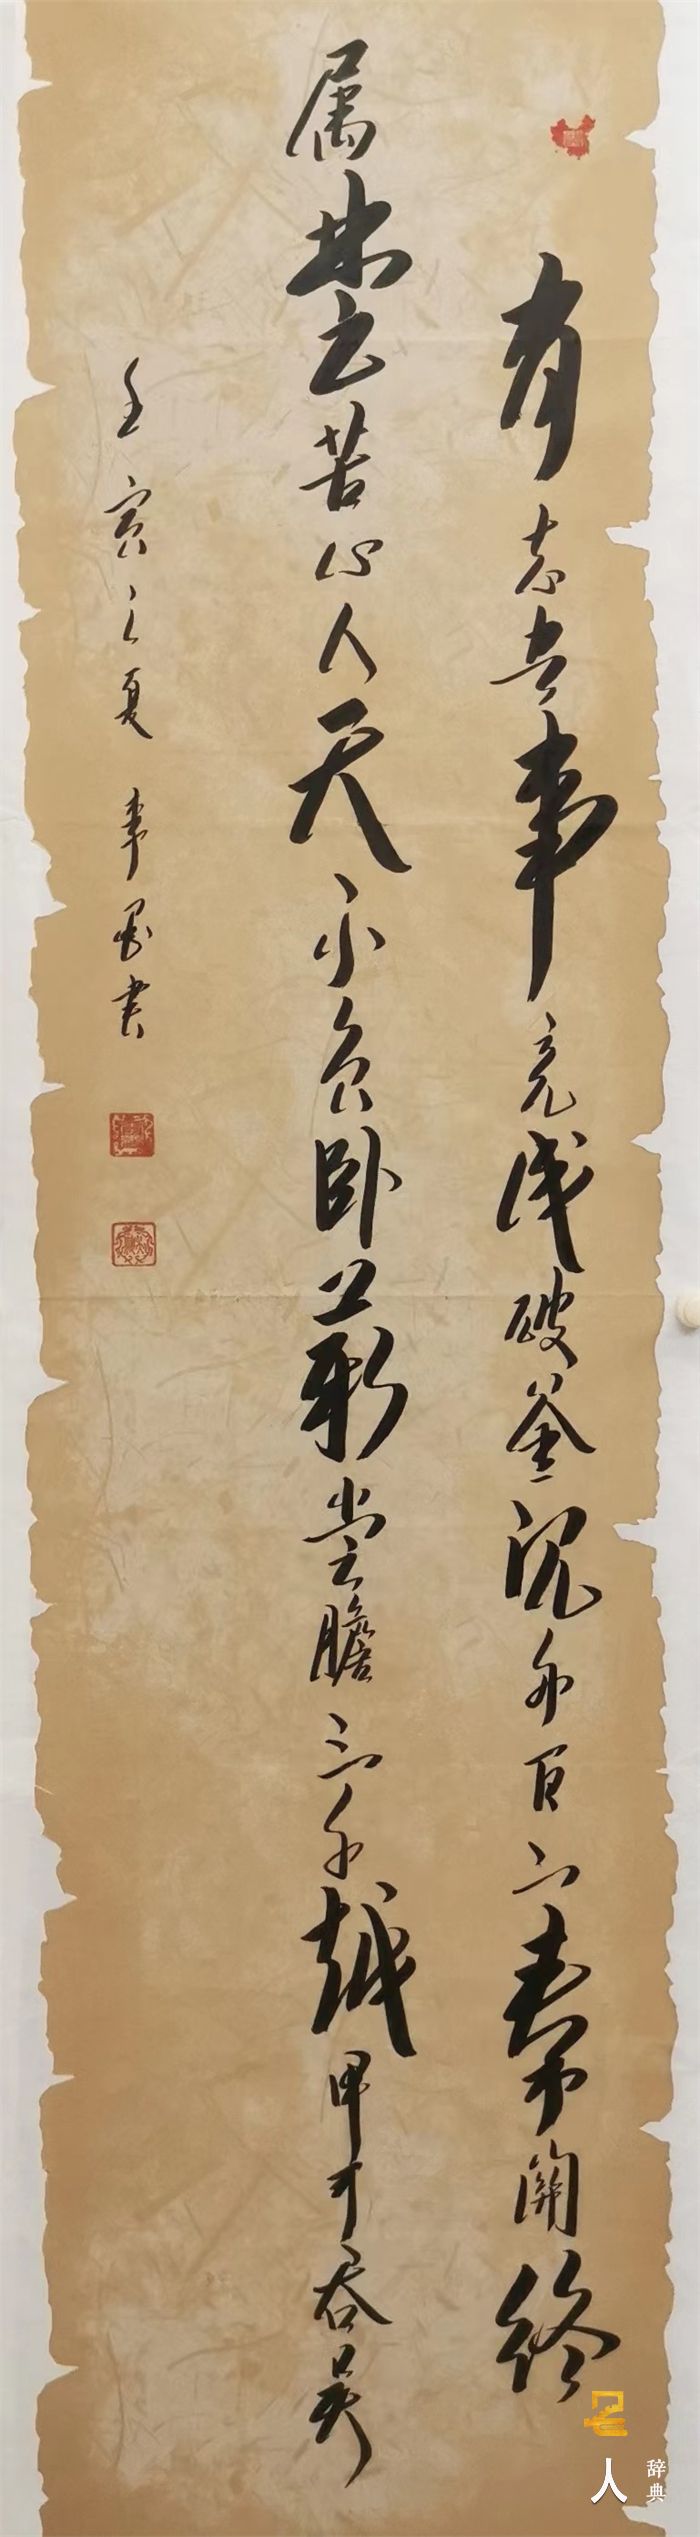 有志者事竟成破釜沉舟百二秦關終
属楚苦心人天不负卧薪尝膽三千越甲可吞吴
壬寅之夏 书
人
辞典